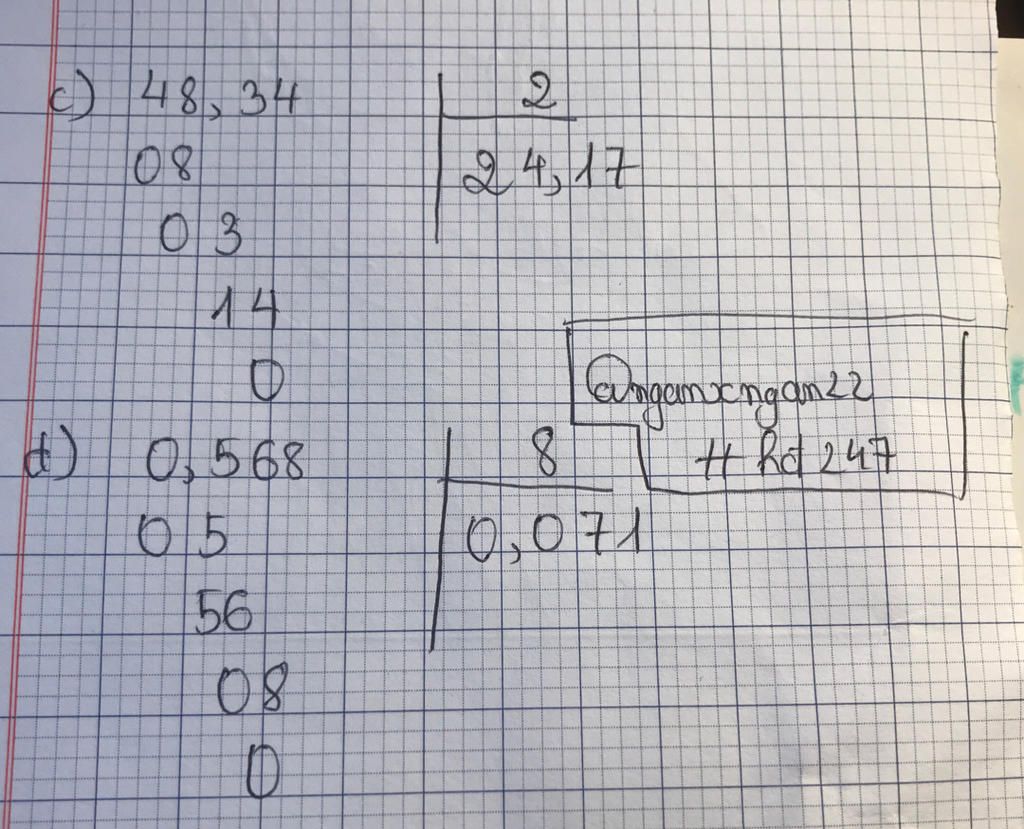 c) 48,34 2
08 24,17
0 3
14
0
@nganxngan22
# hd 247
d) 0,568 8
0 5 0,071
56
08
0